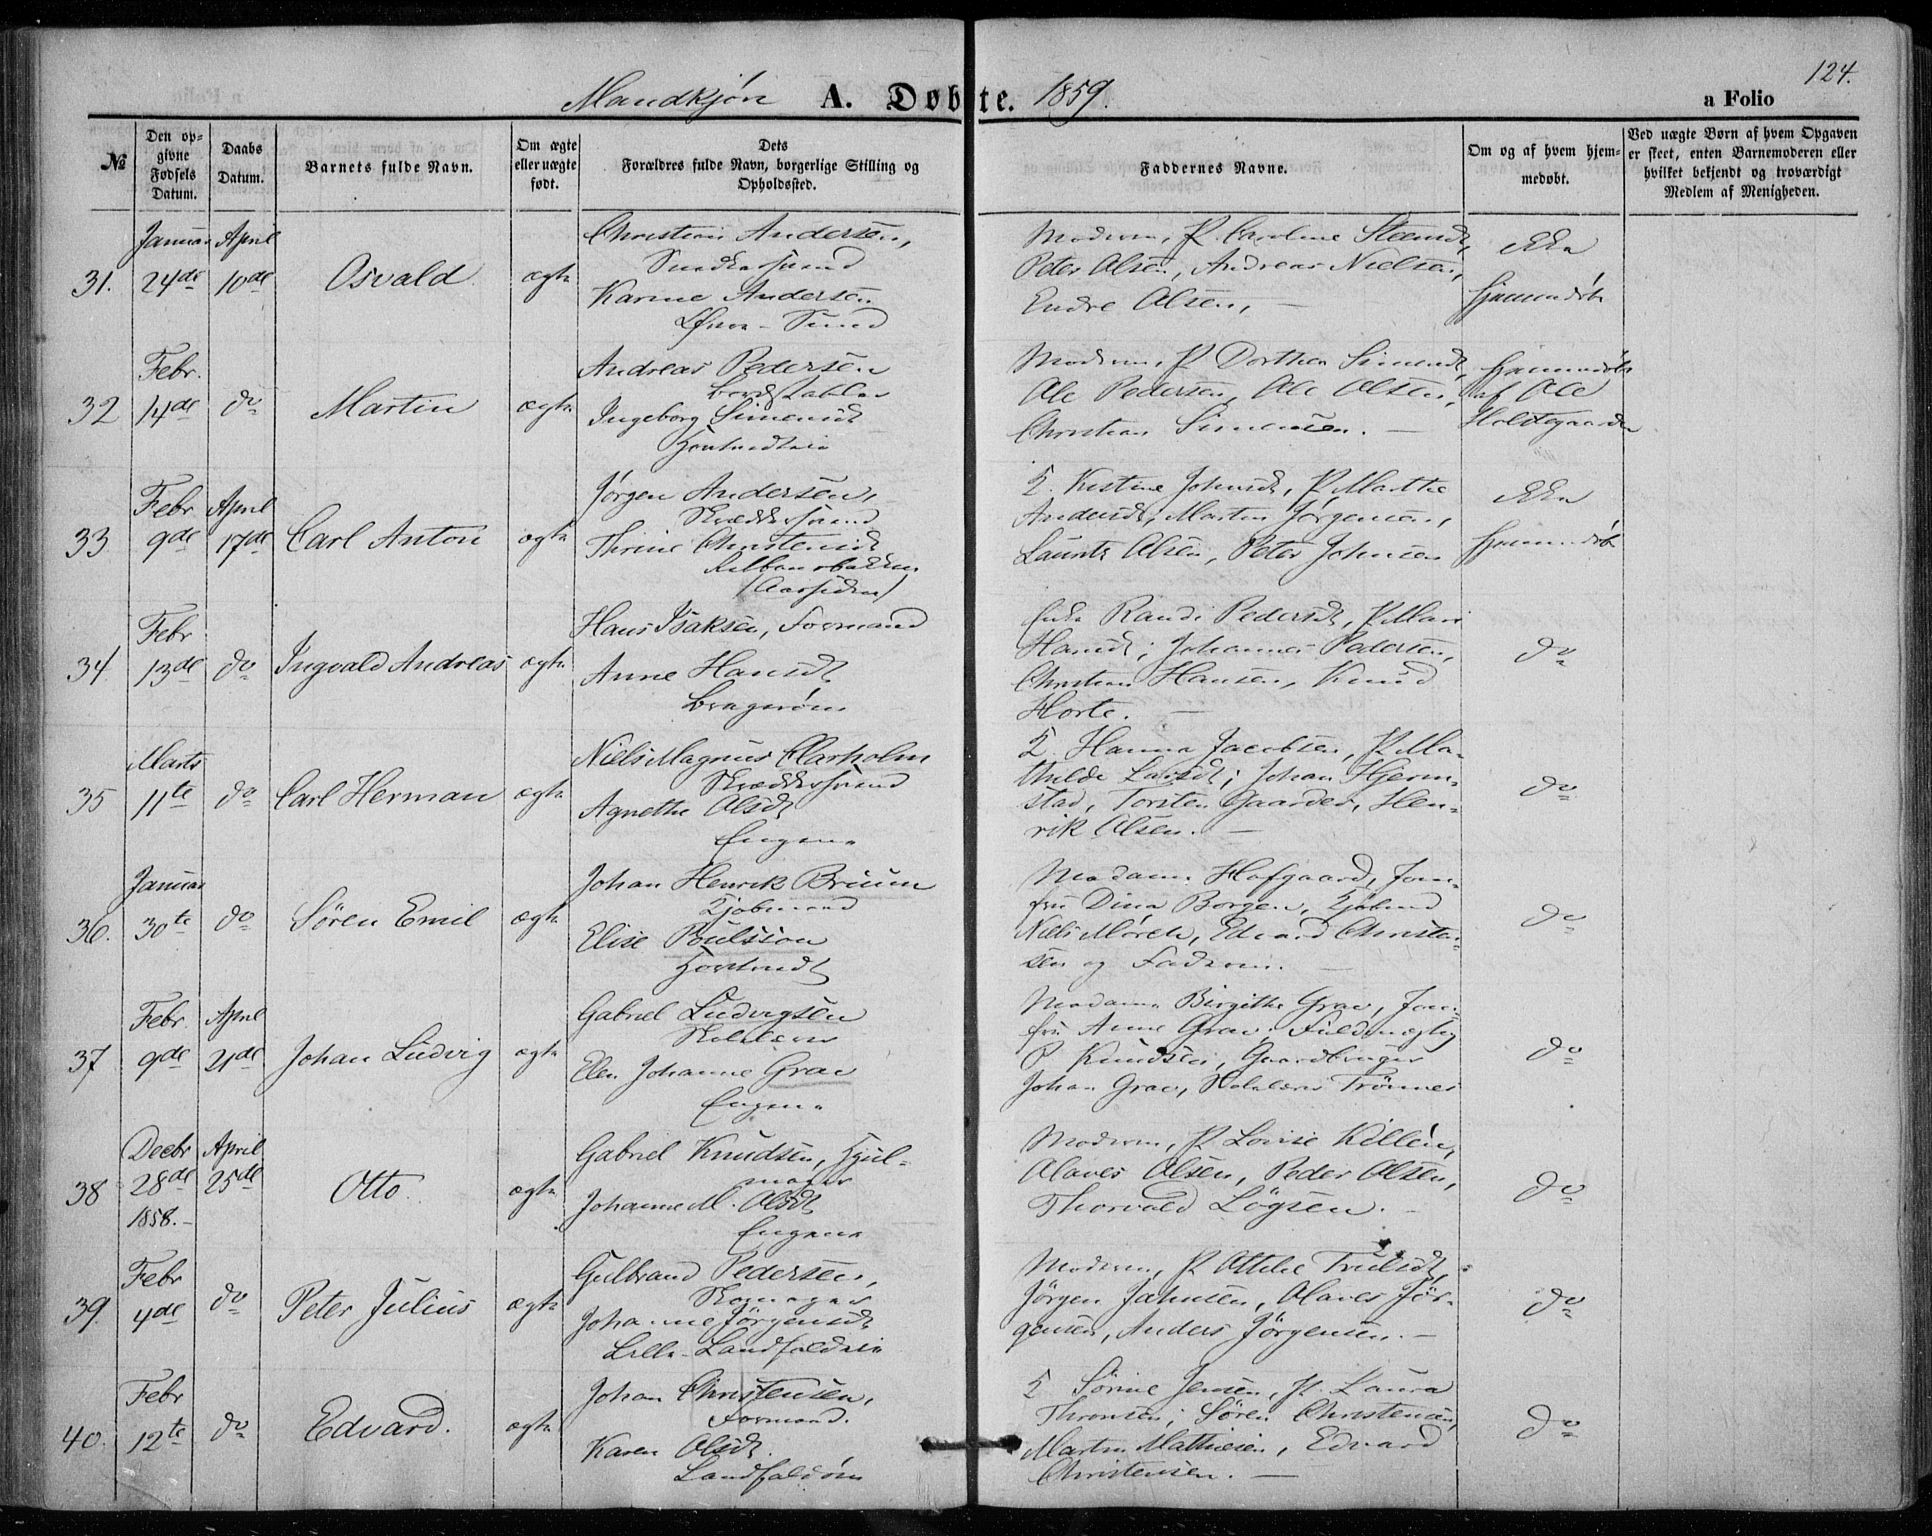 124.
Mandkjøn A. Døbte. 1859.
a Folio
№
Den opgivne Fødsels Datum.
Daabs Datum.
Barnets fulde Navn.
Om ægte eller uægte født.
Dets Forældres fulde Navn, borgerlige Stilling og Opholdssted.
Faddernes Navne.
Om og af hvem hjemmedøbt.
Ved uægte Børn af hvem Opgaven er skeet, enten Barnemoderen eller hvilket bekjendt og troværdigt Medlem af Menigheden.
Januar April
31. 24de 10de Osvald ægte
Christian Andersen,
Snedkersvend
Karine Andersen
Øvre-Sund
Moderen, P. Caroline Steensd,
Peter Olsen, Andreas Nielsen,
Endre Olsen, —
ikke
hjemmedøbt
Febr.
32 14de do Martin ægte
Andreas Pedersen
Bordstabler
Ingeborg Simensdt
Moderen, P. Dorthea Simensdt,
Ole Pedersen, Ole Olsen,
Christian Simensen. —
hjemmedøbt
af Ole
Holtegaarden
Febr April
33 9de 17de Carl Anton ægte
Jørgen Andersen,
Skræddersvend
Thrine Christensdt
(Aassiden)
K. Kistine Johnsdt, P. Marthe
Andersdt, Martin Jørgensen,
Lauritz Olsen, Peter Johnsen
ikke
hjemmedøbt
Febr
34. 13de do Ingvald Andreas ægte
Hans Isaksen, Formand
Anne Hansdt
Bragerøen
Enke Randi Pedersdt, P. Mari
Hansdt; Johannes Pedersen,
Christian Hansen, Knud
Horte. —
do
Marts
35 11te do Carl Herman ægte
Niels Magnus Clarholm
Skræddersvend
Agnethe Olsdt
Engene
K. Hanna Jacobsen, P. Ma-
thilde Larsdt; Johan Hjerm-
stad, Torsten Gaarder, Hen-
rik Olsen. —
do
Januar
36. 30te do Søren Emil ægte
Johan Henrik Bruun
Kjøbmand
Elise Poulsson
Madame Hofgaard, Jom-
fru Dina Borgen, Kjøbmd
Niels Mørch, Edvard Christen-
sen og Faderen. —
do
Febr. April
37 9de 21de Johan Ludvig ægte
Gabriel Ludvigsen
Skolelærer
Elen Johanne Grav
Engene
Madame Birgithe Grav, Jom-
fru Anne Grav; Fuldmægtig
P. Knudsen, Gaardbruger
Johan Grav, Skolelærer Trønnes
do
Decbr April
38 28de 25de Otto. ægte
1858.-
Gabriel Knudsen, Hjul-
mager
Johanne M. Olsdt
Engene
Moderen, P. Lovise Killén,
Olaves Olsen, Peder Olsen,
Thorvald Løgsen. -
do
Febr
39. 4de do Peter Julius ægte
Gulbrand Pedersen,
Skomager
Johanne Jørgensdt
Lille-Landfaldeie
Moderen, P. Ottilie Trulsdt,
Jørgen Johnsen, Olaves Jør-
gensen, Anders Jørgensen. —
do
Febr
40. 12te do Edvard. ægte
Johan Christensen,
Formand.
Karen Olsdt.
Landfaldøen
K. Sørine Jensen, P. Laura
Thronsen; Søren Christensen,
Martin Mathiesen, Edvard
Christensen. —
do